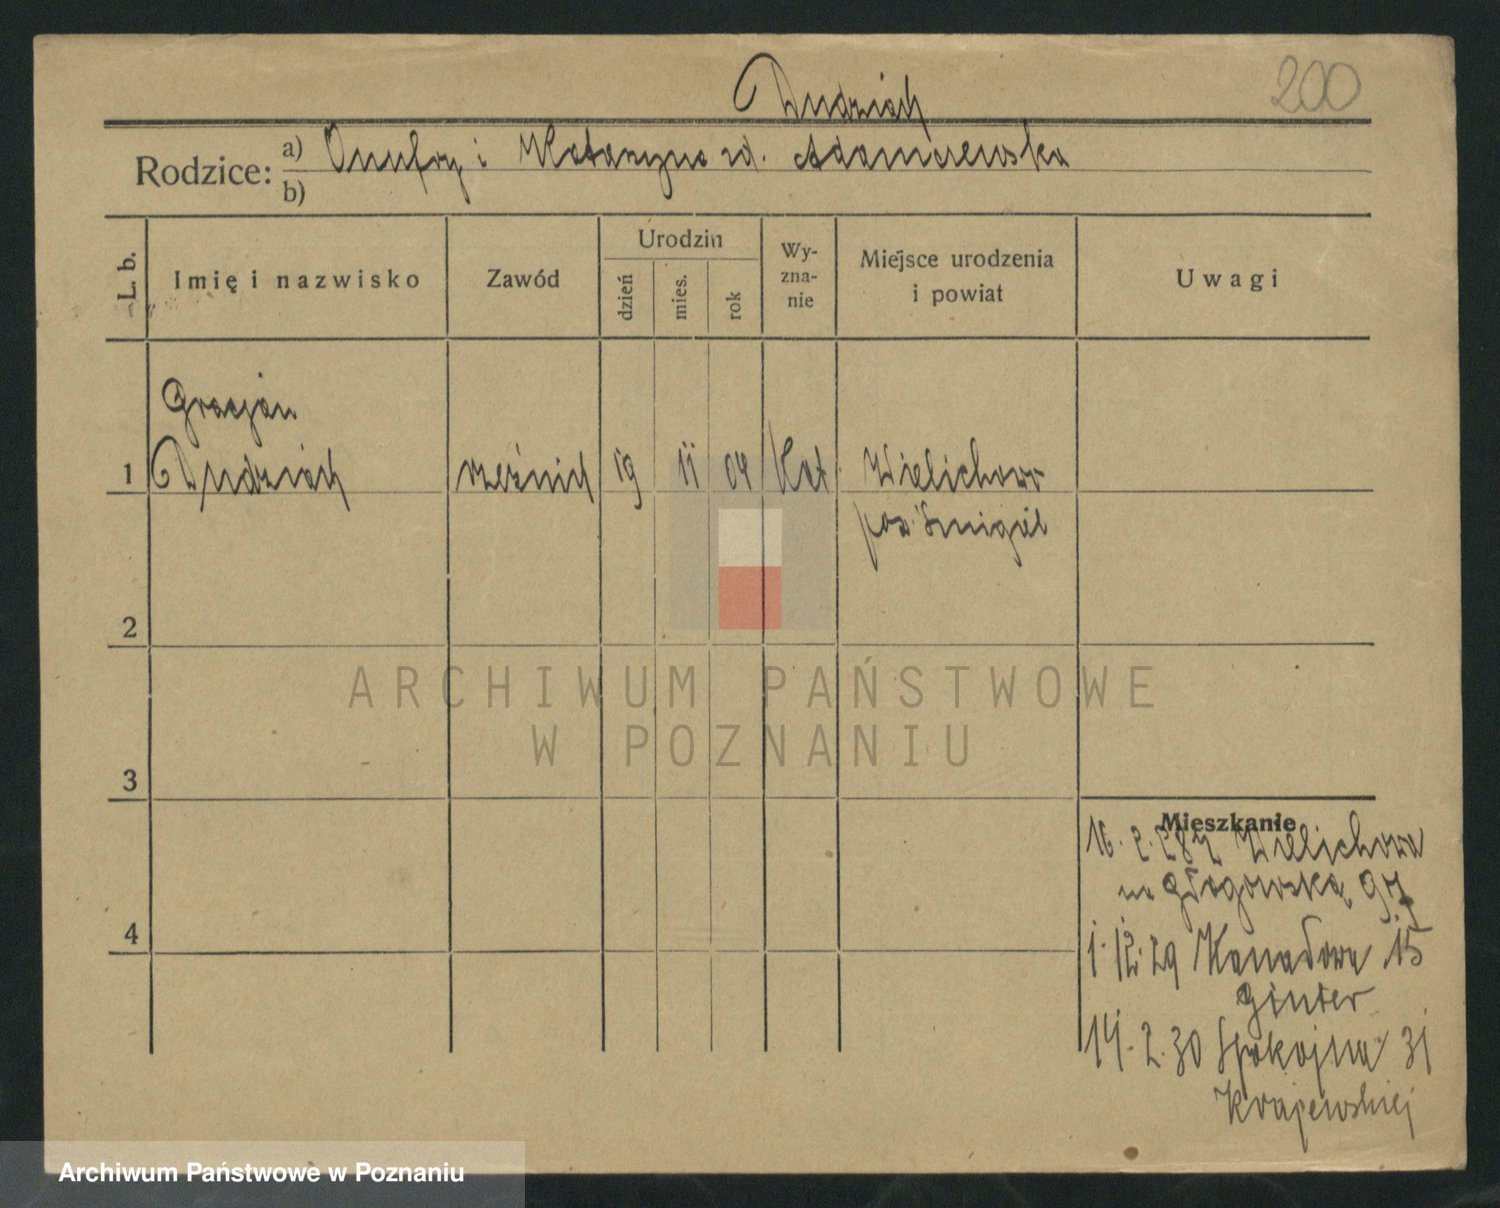 200
Dudziak
Rodzice: a) Onufry i Katarzyna zd. Adamczewska
b)
L. b.
Imię i nazwisko
Zawód
Urodzin
dzień
mies.
rok
Wy-
zna-
nie
Miejsce urodzenia
i powiat
Uwagi
Gracjan
1 Dudziak rzeźnik 19 11 04 Kat Wielichowo
pow Śmigiel
2
3
4
Mieszkanie
16. 2. 28 z Wielichowa
na Głogowską 97
1. 12. 29 Kanałowa 15
Ginter
14. 2. 30 Spokojna 31
Krajewskiej
ARCHIWUM PAŃSTWOWE
W POZNANIU
Archiwum Państwowe w Poznaniu